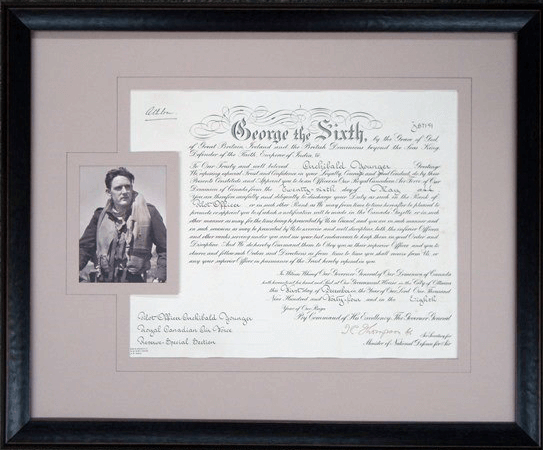 George the Sixth, by the Grace of God,
of Great Britain, Ireland and the British Dominions beyond the Seas King
Defender of the Faith, Emperor of India, &c
To Our Trusty and well beloved Archibald Younger Greeting:
We reposing especial Trust and Confidence in your Loyalty, Courage and Good Conduct, do by these
Presents Constitute and Appoint you to be an Officer in Our Royal Canadian Air Force of Our
Dominion of Canada from the Twenty-sixth day of May
You are therefore carefully and diligently to discharge your Duty as such in the Rank of
Pilot Officer or in such other Rank as We may from time to time hereafter be pleased to
promote or appoint you to of which a notification will be made in the Canada Gazette
manner as may for the time being be prescribed by Us in Council, and you are in such manner and
in such occasions as may be prescribed by Us to exercise and well discipline both the inferior Officers
and other ranks serving under you and use your best endeavours to keep them in good Order and
Discipline And We do hereby Command them to Obey you as their superior Officer and you to
observe and follow such Orders and Directions as from time to time you shall receive from Us, or
any your superior Officer in pursuance of the Trust hereby reposed in you
In Witness Whereof Our Governor General of Our Dominion of Canada
hath hereunto set his hand and Seal at Our Government House in the City of Ottawa
this First day of December in the Year of Our Lord One Thousand
Nine Hundred and Forty-four and in the Eighth
Year of Our Reign
By Command of His Excellency The Governor General
Pilot Officer Archibald Younger
Royal Canadian Air Force
Reserve-Special Section
Minister of National Defence for Air